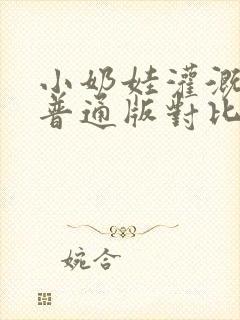 小奶娃灌溉
普通版對比
婉合